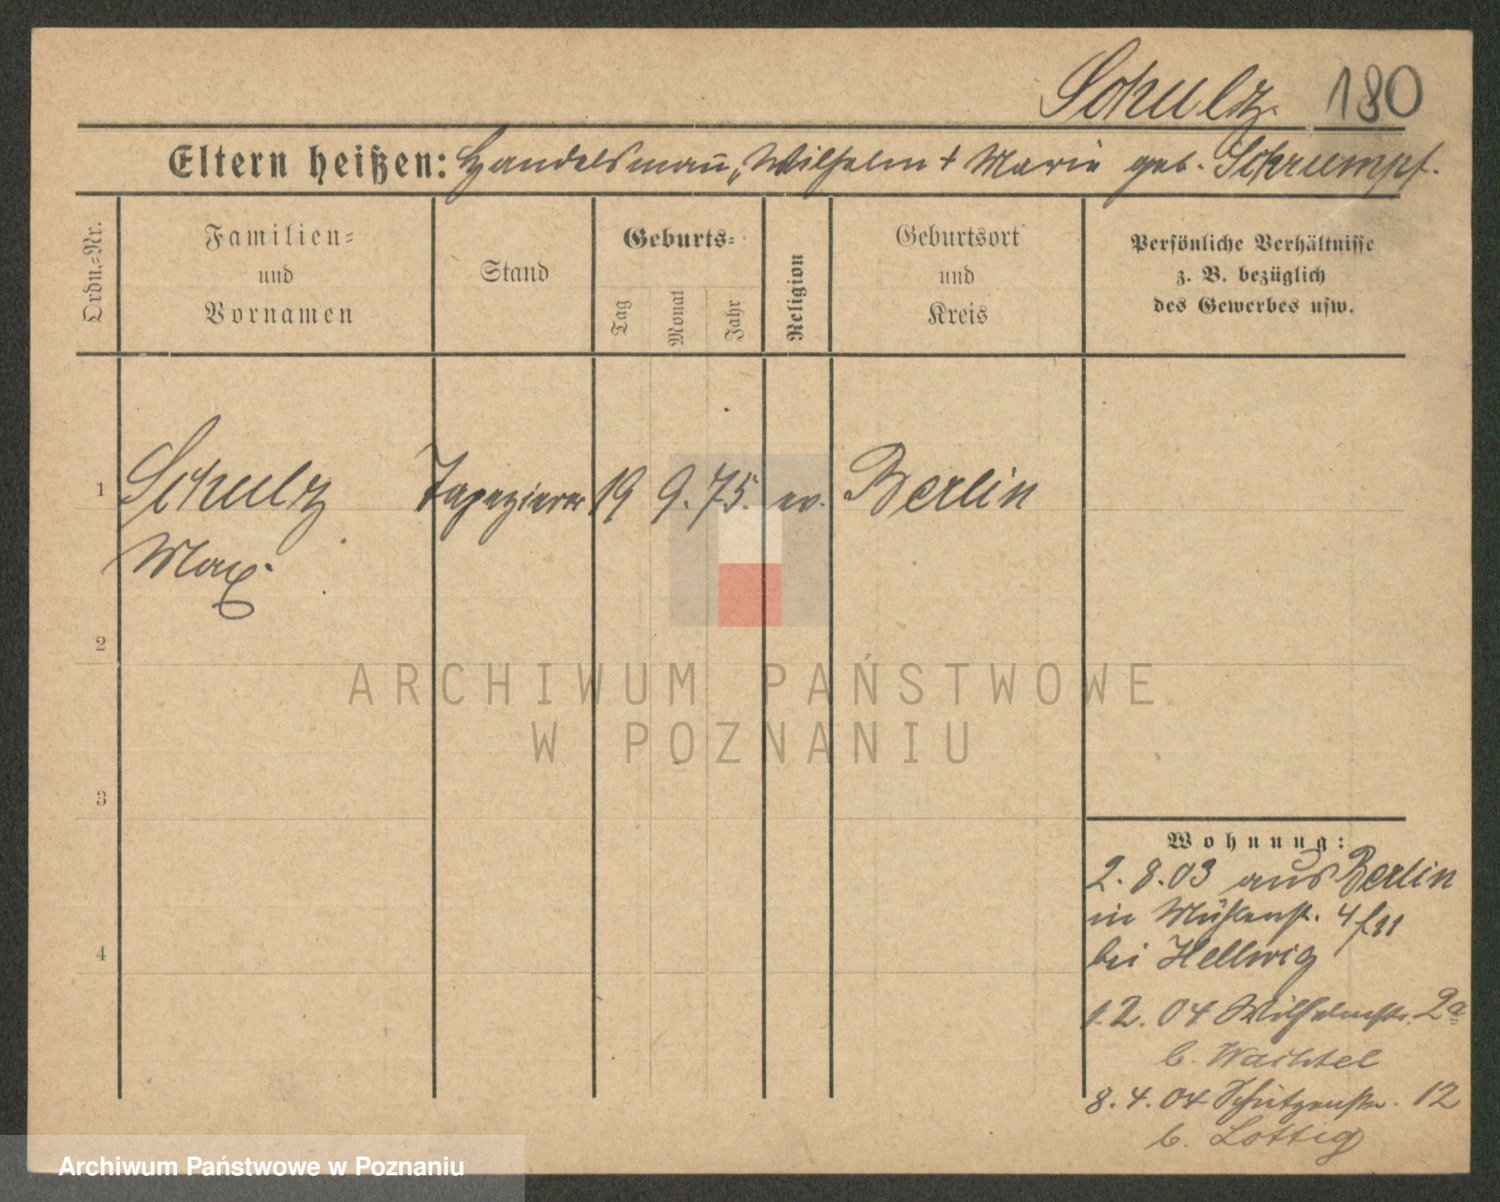 Schulz 180
Eltern heißen: Handelsmañ, Wilhelm + Marie geb. Schrumpf.
Ordn.=Nr.
Familien=
und
Vornamen
Stand
Geburts=
Tag
Monat
Jahr
Religion
Geburtsort
und
Kreis
Persönliche Verhältnisse
z. B. bezüglich
des Gewerbes usw.
1 Schulz Tapezierer 19 9. 75. ev. Berlin
Max.
2
3
4
Wohnung:
2. 8. 03 aus Berlin
in Mühlenst. 4
bei Hellwig
1. 2. 04 Wilhelmstr. 2a
b. Wachtel
8. 4. 04 Schützenstr. 12
b. Lottig
ARCHIWUM PAŃSTWOWE
W POZNANIU
Archiwum Państwowe w Poznaniu